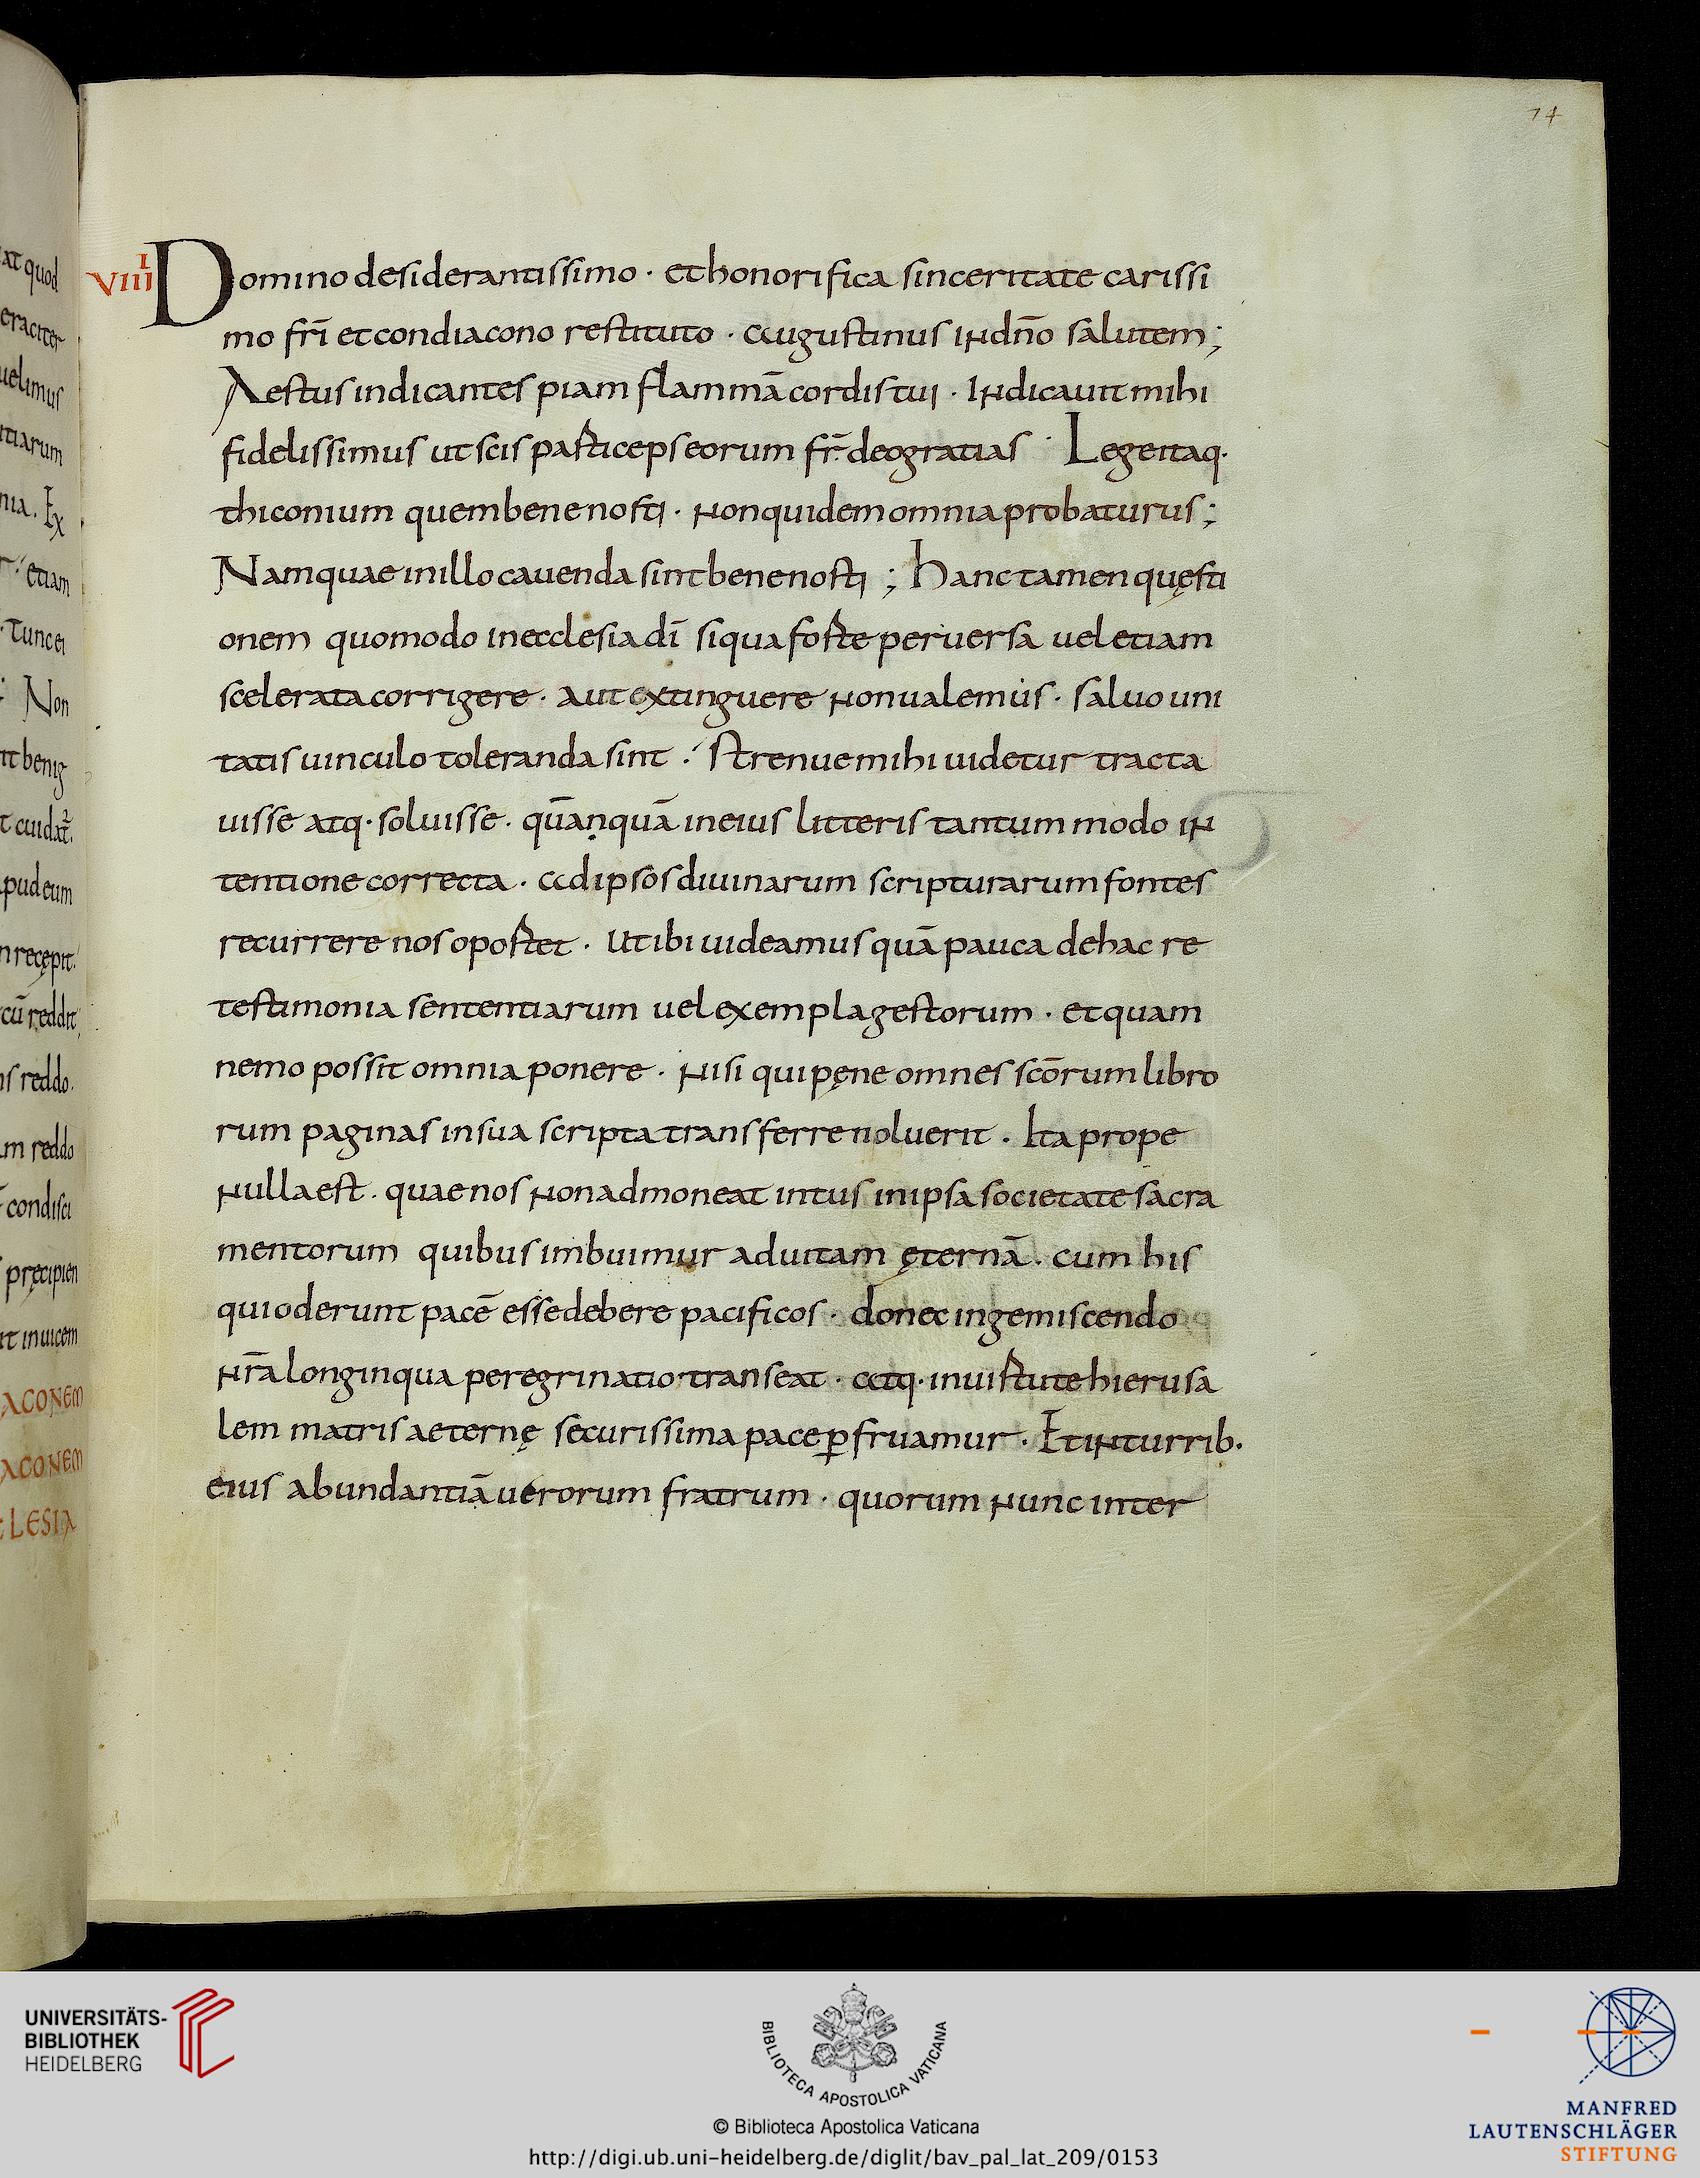 74
VIIII Domino desiderantissimo · et honorifica sinceritate carissi
mo fr̄i et condiacono restituto · augustinus in dn̄o salutem ;
Aestus indicantes piam flammā cordis tui · Indicauit mihi
fidelissimus ut scis particeps eorum fr̄ deogratias · Lege itaq·
thiconium quem bene nosti · non quidem omnia probaturus ;
Nam quae in illo cauenda sint bene nosti ; hanc tamen quęsti
onem quomodo in ecclesia dī si qua forte peruersa uel etiam
scelerata corrigere · aut extinguere non ualemus · saluo uni
tatis uinculo toleranda sint ·´ strenue mihi uidetur tracta
uisse atq· soluisse · quāṇquā in eius litteris tantum modo in
tentione correcta · ad ipsos diuinarum scripturarum fontes
recurrere nos oportet · Ut ibi uideamus quā pauca de hac re
testimonia sententiarum uel exempla gestorum · et quam
nemo possit omnia ponere · nisi qui pęne omnes scōrum libro
rum paginas in sua scripta transferre uoluerit · Ita prope
nulla est · quae nos non admoneat intus in ipsa societate sacra
mentorum quibus imbuimur ad uitam ęternā · cum his
qui oderunt pacē esse debere pacificos · donec ingemiscendo
nr̄a longinqua peregrinatio transeat · atq· in uirtute hierusa
lem matris aeternę securissima pace ꝑfruamur · Et in turrib·
eius abundantiā uerorum fratrum · quorum nunc inter
at quod
eraciter
uelimus
itiarum
nia · Ex
etiam
· Tunc ei
; Non
it benig
t cuidat̄
apud eum
n recępit
cū reddit
is reddo ·
m reddo
condisci
pręcipien
it inuicem
ACONEM
ACONEM
CLESIA
UNIVERSITÄTS-
BIBLIOTHEK
HEIDELBERG
BIBLIOTECA APOSTOLICA VATICANA
© Biblioteca Apostolica Vaticana
http://digi.ub.uni-heidelberg.de/diglit/bav_pal_lat_209/0153
MANFRED
LAUTENSCHLÄGER
STIFTUNG